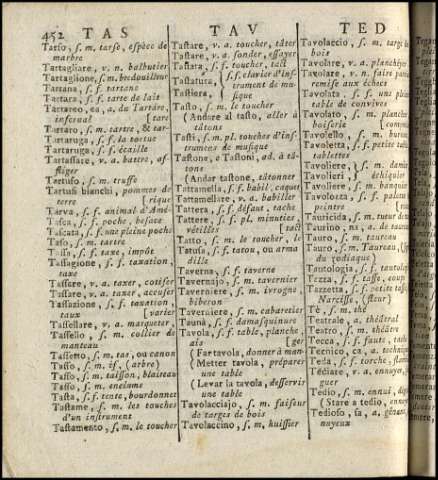 452 TAS TAV TED
Tarso, s. m. tarse, espèce de
marbre
Tartagliare, v. n. balbutier
Tartaglione, s. m. bredouilleur
Tartana, s. f. tartane
Tartara, s. f. tarte de lait
Tartareo, ea, a. de Tartare,
infernal [tare
Tartaro, s. m. tartre, & tar-
Tartaruga, s. f. la tortue
Tartaruga, s. f. écaille
Tartassare, v. a. battre, af-
fliger
Tartufo, s. m. truffe
Tartufi bianchi, pommes de
terre [rique
Tarva, s. f. animal d'Amé-
Tasca, s. f. poche, besace
Tascata, s. f. une pleine poche
Taso, s. m. tartre
Tassa, s. f. taxe, impôt
Tassagione, s. f. taxation,
taxe
Tassare, v. a. taxer, cotiser
Tassare, v. a. taxer, accuser
Tassazione, s. f. taxation,
taux [varier
Tassellare, v. a. marqueter,
Tassello, s. m. collier de
manteau
Tassetto, s. m. tas, ou canon
Tasso, s. m. if, (arbre)
Tasso, s. m. taisson, blaireau
Tasso, s. m. enclume
Tasta, s. f. tente, bourdonnet
Tastame, s. m. les touches
d'un instrument
Tastamento, s. m. le toucher
Tastare, v. a. toucher, tâter
Tastare, v. a. sonder, essayer
Tastata, s. f. le toucher
Tastatura, } s. f. clavier d'inst-
Tastiera, } trument de mu-
sique
Tasto, s. m. le toucher
(Andare al tasto, aller à
tâtons
Tasti, s. m. pl. touches d'inst-
trumens de musique
Tastone, e Tastoni, ad. à tâ-
tons
(Andar tastone, tâtonner
Tattamella, s. f. babil, caquet
Tattamellare, v. a. babiller
Tattera, s. f. défaut, tache
Tattere, s. f. pl. minuties,
vétilles [tact
Tatto, s. m. le toucher, le
Tatusa, s. f. tatou, ou arma
dille
Taverna, s. f. taverne
Tavernajo, s. m. tavernier
Taverniere, s. m. ivrogne,
biberon
Taverniere, s. m. cabaretier
Tauna, s. f. damasquinure
Tavola, s. f. table, planche,
ais [ger
(Far tavola, donner à man-
(Metter tavola, préparer
une table
(Levar la tavola, desservir
une table
Tavolacciajo, s. m. faiseur
de targes de bois
Tavolaccino, s. m. huissier
Tavolaccio, s. m. targe de
bois
Tavolare, v. a. planchéier
Tavolare, v. n. faire partie
remise aux échecs
Tavolata, s. f. une pleine
table de convives
Tavolato, s. m. planche
boiserie
Tavolello, s. m. bureau
Tavoletta, s. f. petite table
tablettes
Tavoliere, } s. m. damier
Tavolieri, } échiquier
Tavoliere, s. m. banquier
Tavolozza, s. f. palette
peintre
Tauricida, s. m. tueur de
Taurino, na, a. de taureau
Tauro, s. m. taureau
Tauro, s. m. Taureau, (s.
du zodiaque)
Tautologia, s. f. tautologie
Tazza, s. f. tasse, coupe
Tazzetta, s. f. petite tasse
Narcisse, (fleur)
Tè, s. m. thé
Teatrale, a. théâtral
Teatro, s. m. théâtre
Tecca, s. f. faute, tache
Tecnico, ca, a. technique
Teda, s. f. torche, flambeau
Tediare, v. a. ennuyer,
guer
Tedio, s. m. ennui, dégoût
(Stare a tedio, ennuyer
Tedioso, sa, a. gênant,
nuyeux